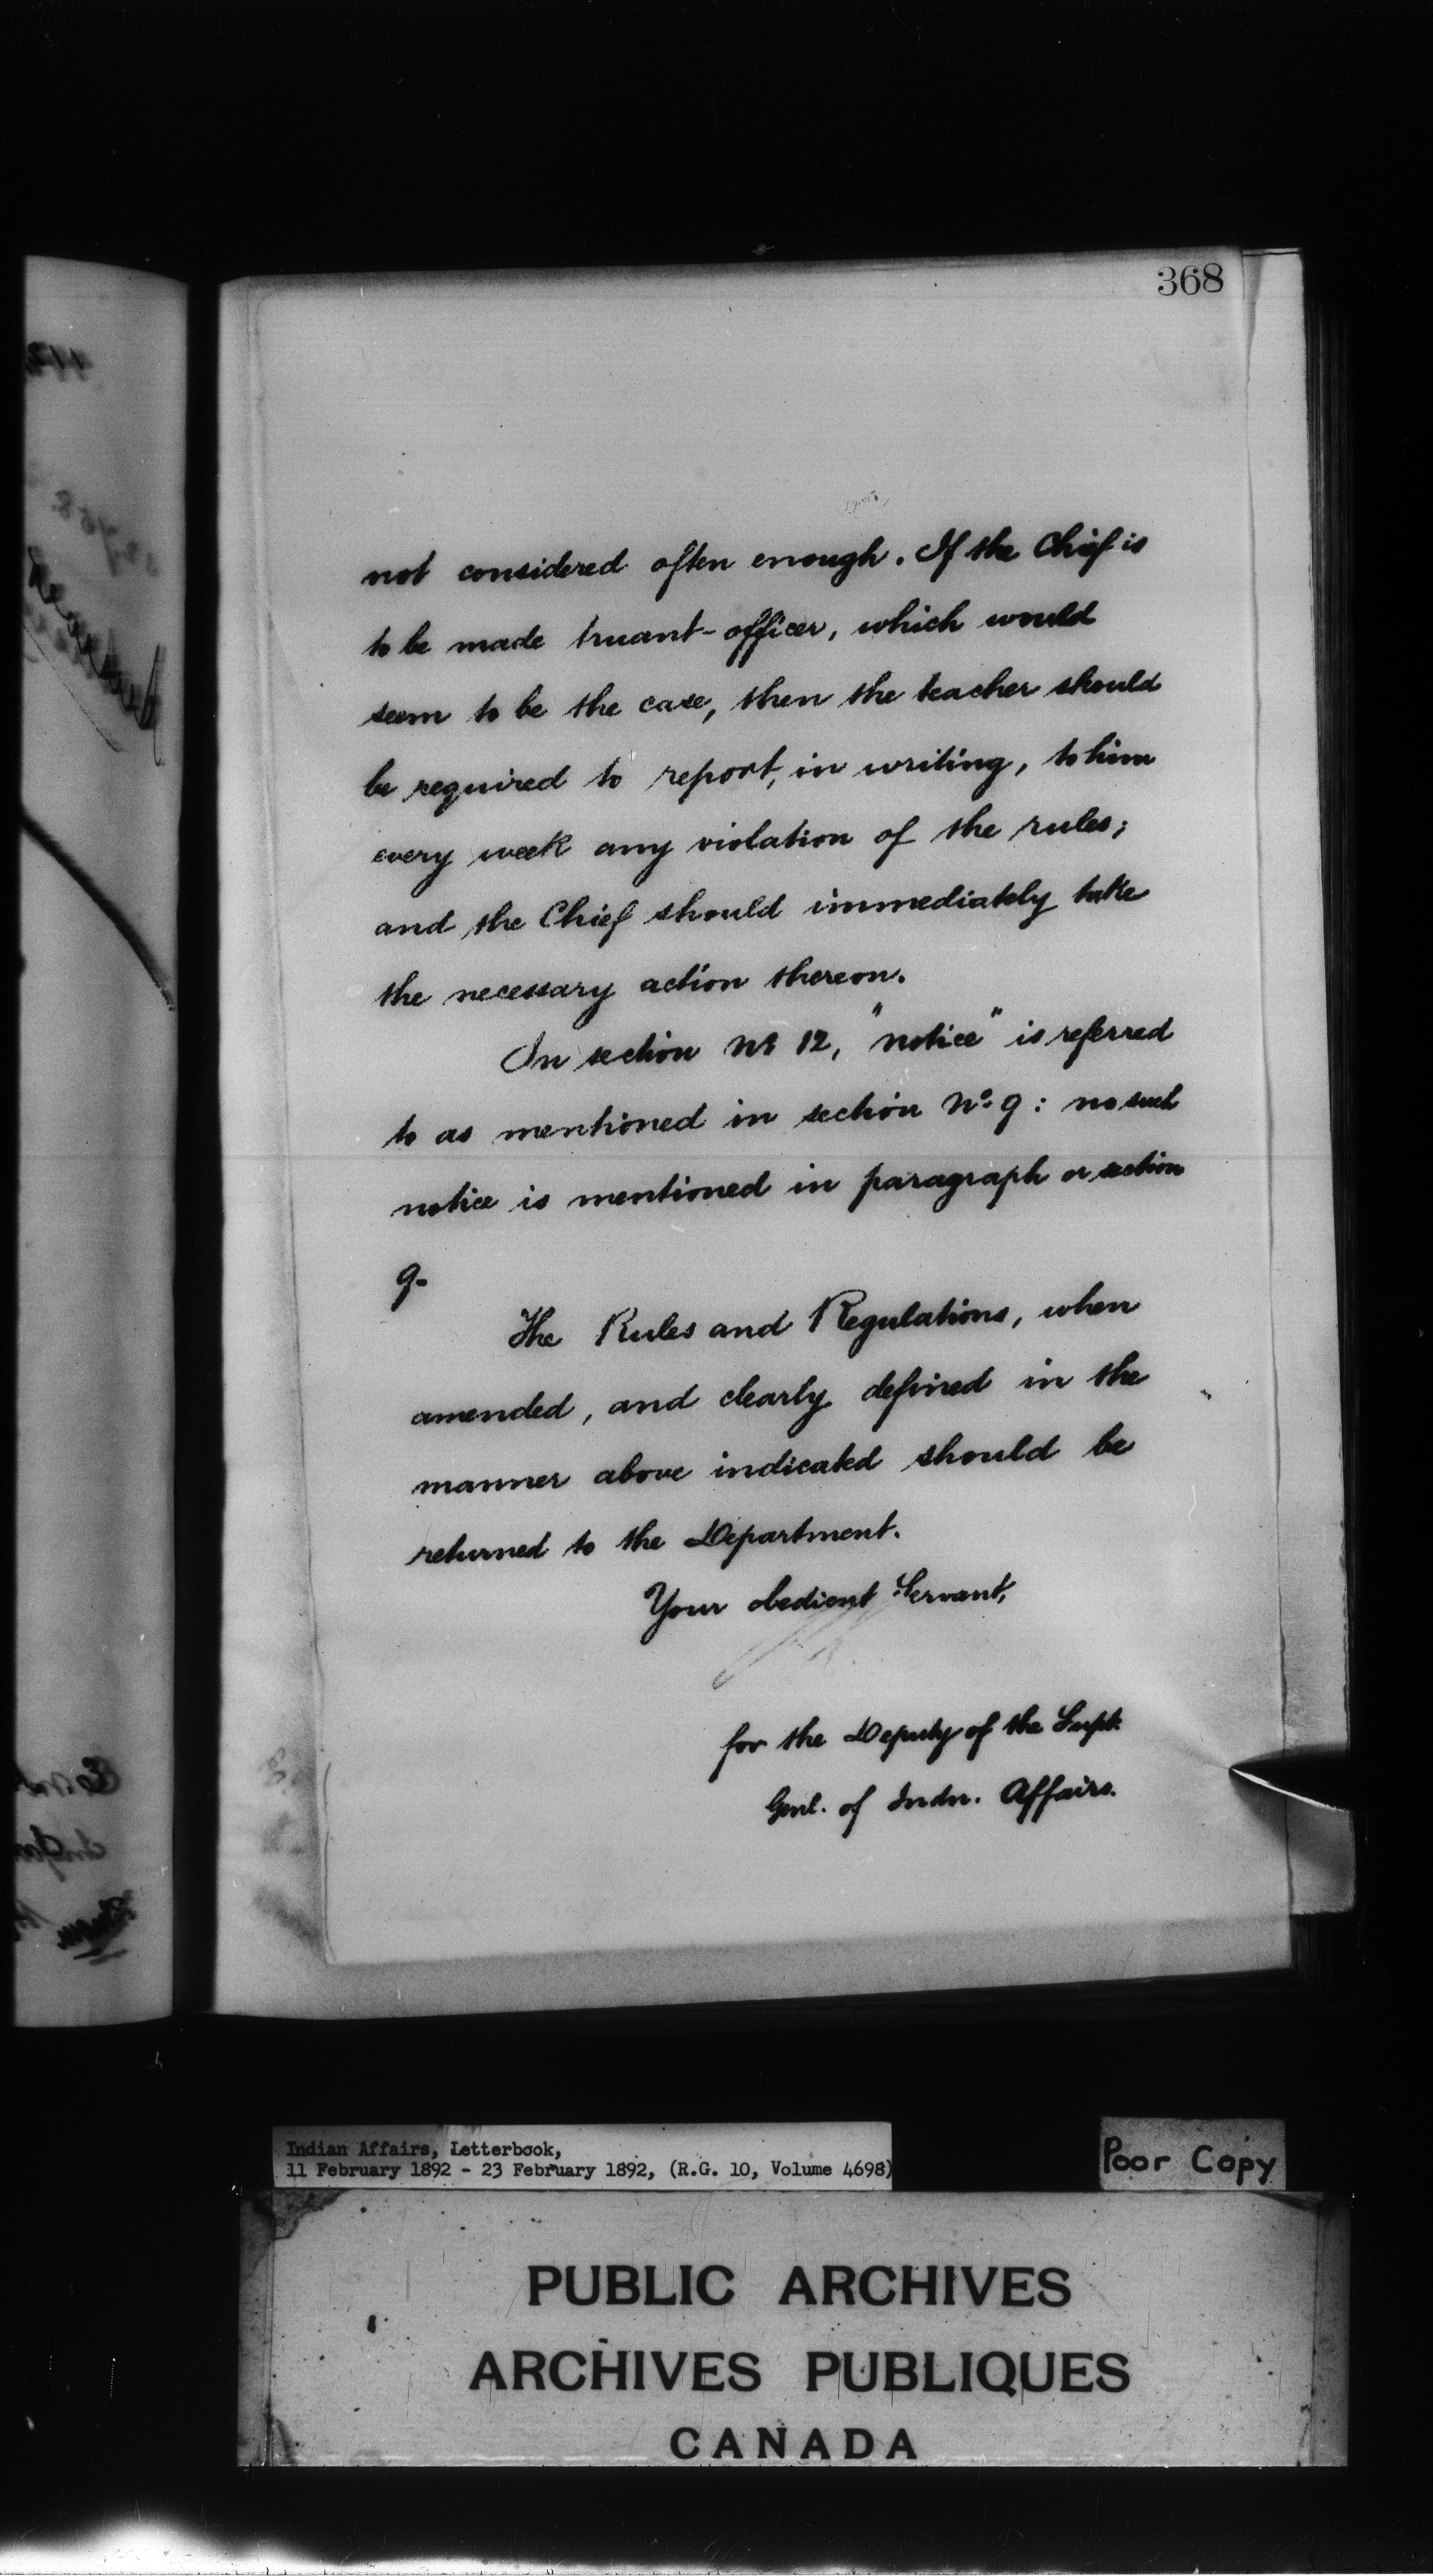 368
not considered often enough. If the Chief is
to be made truant-officer, which would
seem to be the case, then the teacher should
be required to report, in writing, to him
every week any violation of the rules;
and the Chief should immediately take
the necessary action thereon.
In section No 12, "notice" is referred
to as mentioned in section No 9: no such
notice is mentioned in paragraph or section
9-
The Rules and Regulations, when
amended, and clearly defined in the
manner above indicated should be
returned to the Department.
Your obedient Servant,
for the Deputy of the Supt.
Genl. of Indn. Affairs.
Indian Affairs, Letterbook,
11 February 1892 - 23 February 1892, (R.G. 10, Volume 4698)
Poor Copy
PUBLIC ARCHIVES
ARCHIVES PUBLIQUES
CANADA